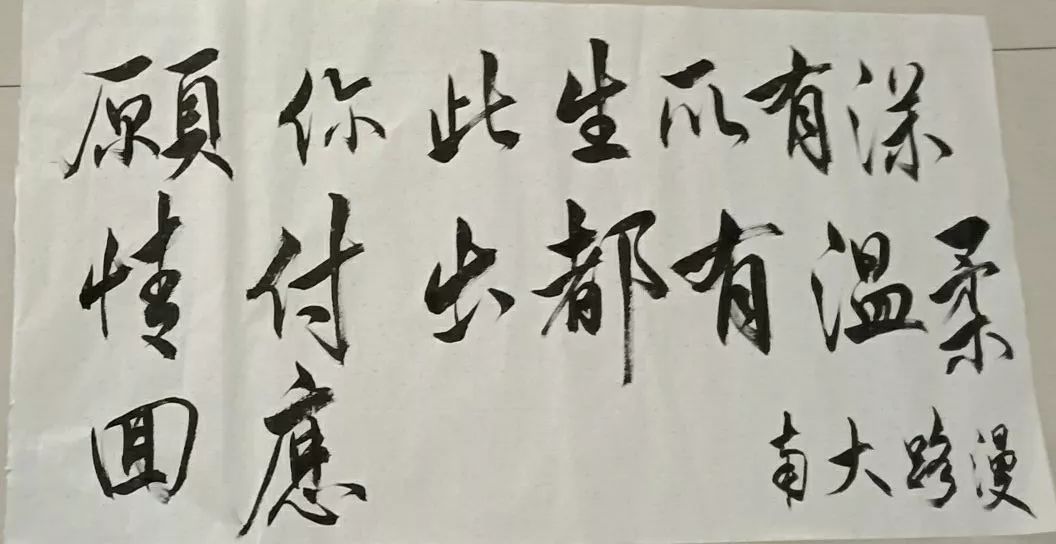 願你此生所有深
情付出都有温柔
回應
南大路漫